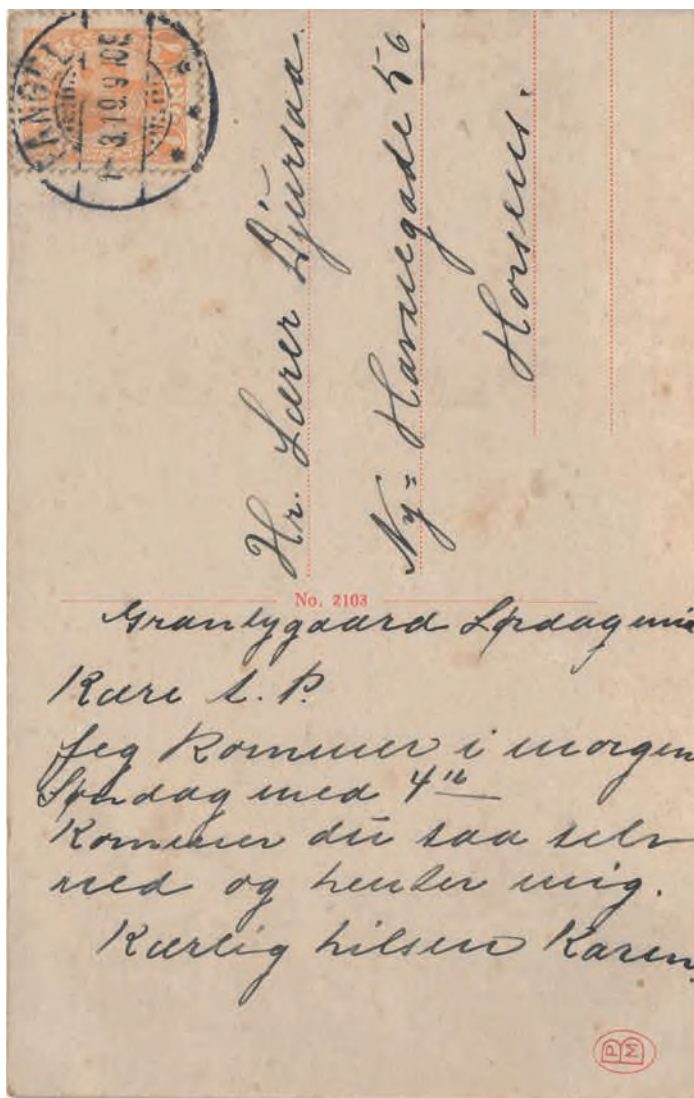 Hr. Lærer Djursaa.
Ny= Havnegade 56
Horsens.
No. 2103
Grantygaard Lørdag
Kære
Jeg kommer i morgen
Søndag med 4 16
Kommer du saa selv
ned og henter mig.
Kærlig hilsen Karen.
P M